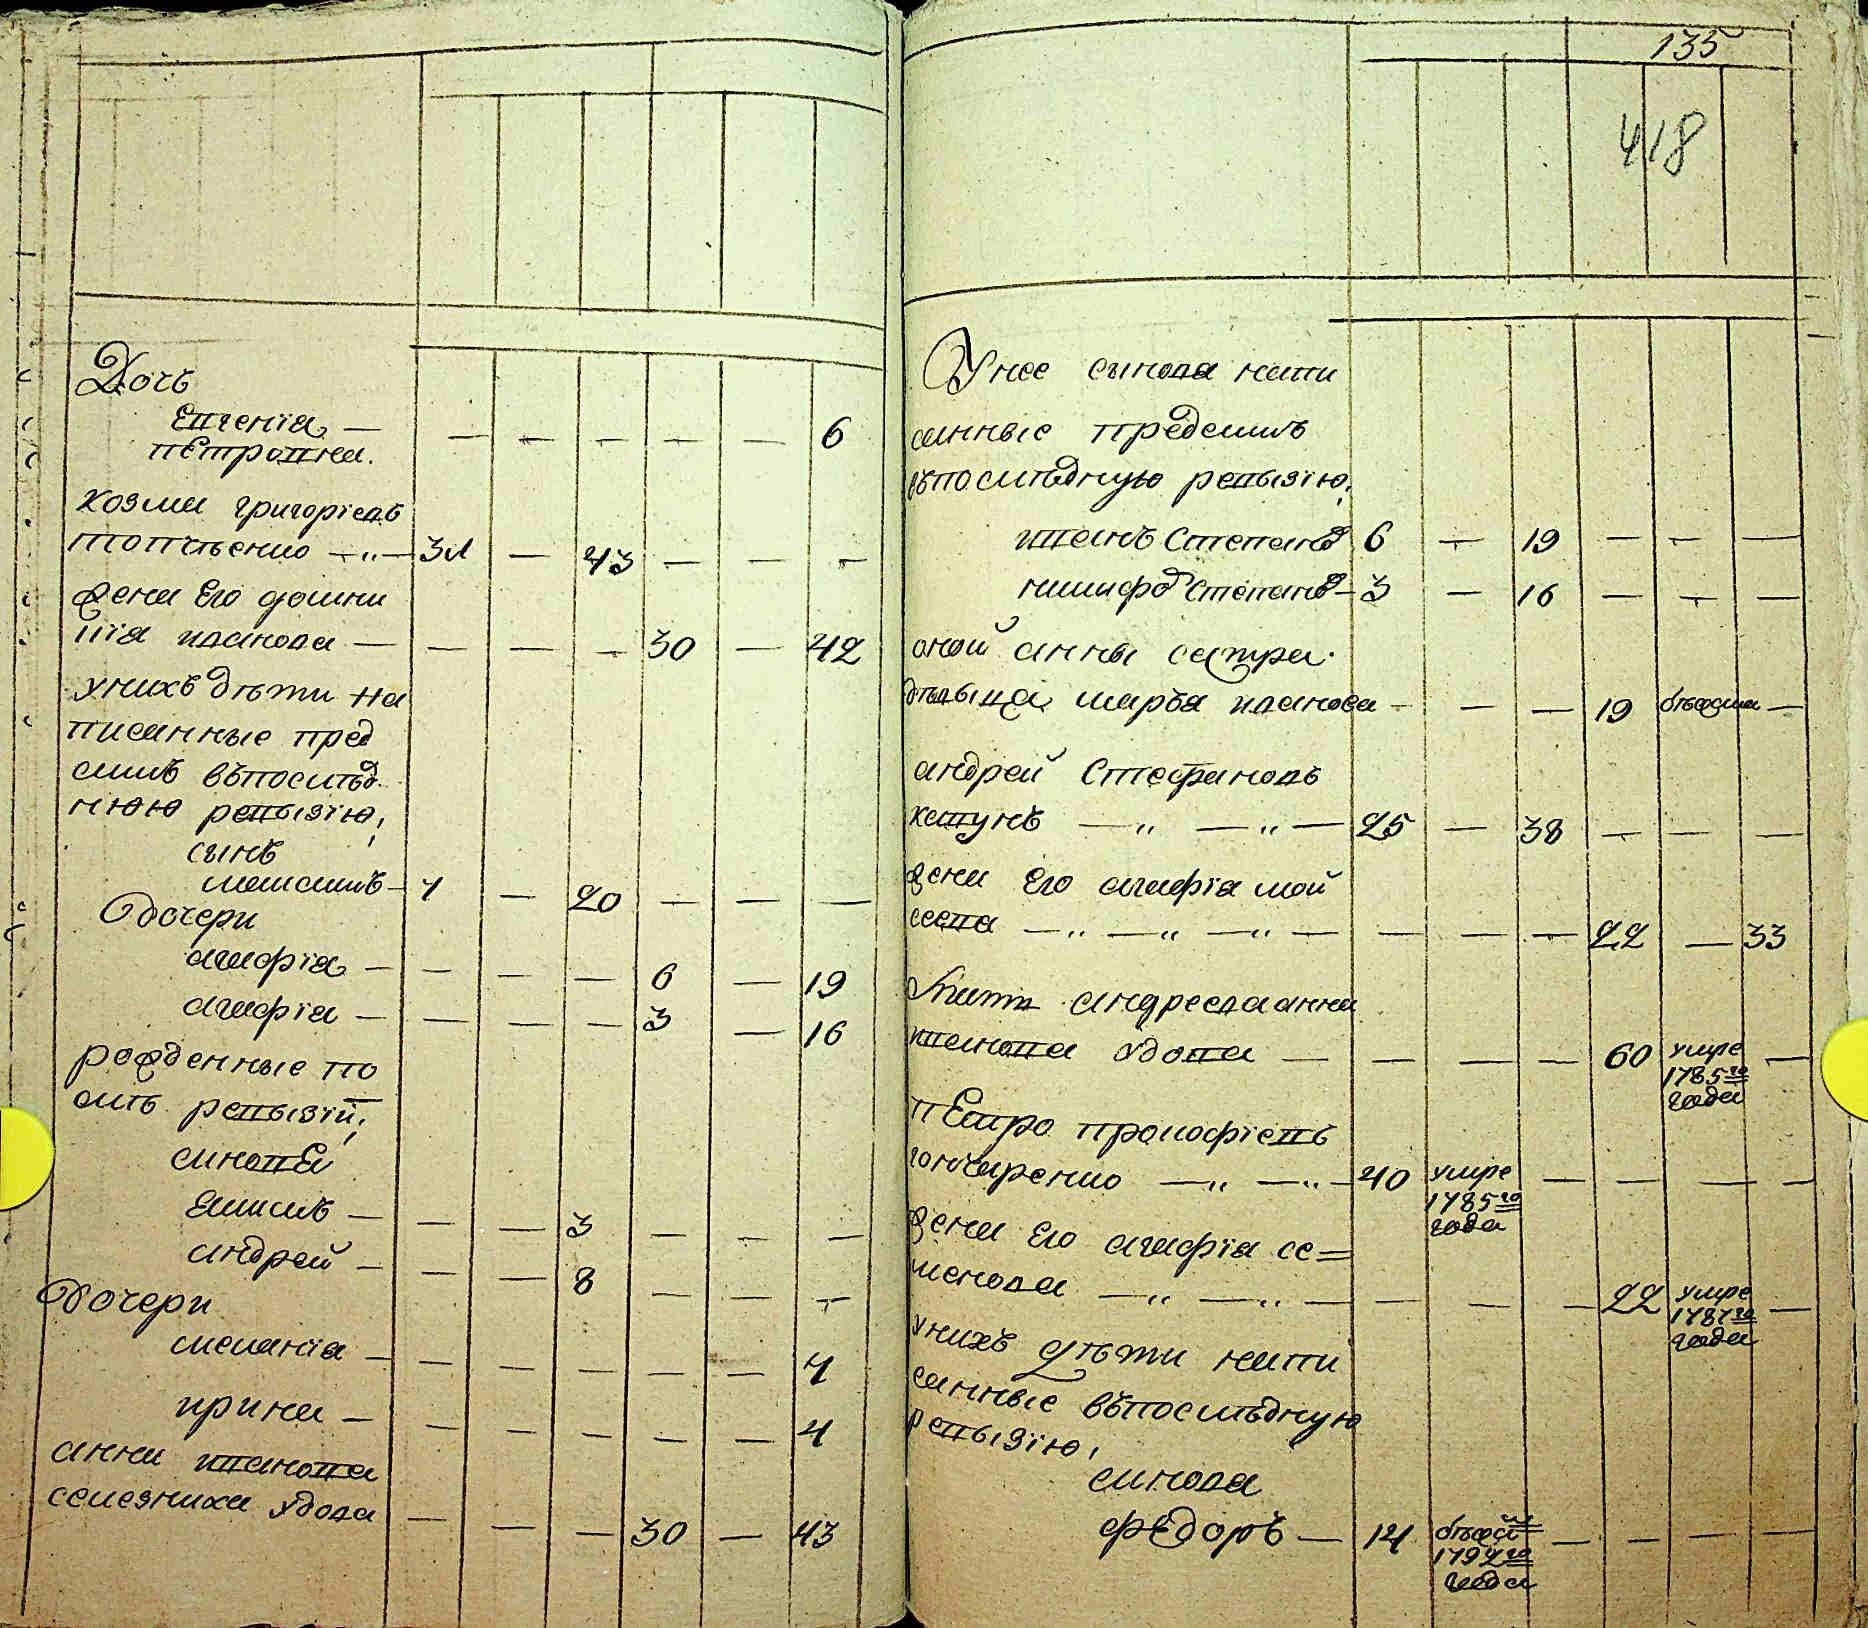 Дочь
Евгенїа — — — — — — 6
пЕтровна.
козма григорїевъ
топчѣенко — „ — 31 — 43 — — —
жена Его домни
кїа иванова — — — — 30 — 42
унихъ дѣти на
писанные пред
симъ въпослѣд
нюю ревызїю,
сынъ
максимъ — 7 — 20 — — —
Дочери
агафїа — — — — 6 — 19
агафїа — — — — 3 — 16
рожденные по
слѣ ревызїй,
синовЕ
Якимъ — — — 3 — — —
андрей — — — 8 — — —
Дочери
меланїа — — — — — — 7
ирина — — — — — — 4
анна иванова
селезниха удова — — — 30 — 43
135
418
Унее сынова напи
санные предсимъ
въпослѣдную ревызїю,
иванъ Степановъ 6 — 19 — — —
никифоръ Степановъ — 3 — 16 — — —
оной анны сестра
дѣвыца марѣя иванова — — — 19 бѣжала —
андрей Стефановъ
кавунъ — „ — „ — 25 — 38 — — —
жена Его агафїа мой
сеева — „ — „ — „ — — — — 22 — 33
Мать андреева анна
иванова удова — — — — 60 умре —
1785го
года
пЕтро прокофїевъ
гончаренко — „ — „ — 40 умре — — — —
1785го
года
жена Его агафїа се=
менова — „ — „ — — — — 22 умре —
1787го
года
унихъ дѣти напи
санные въпослѣдную
ревызїю,
синова
фЕдоръ — 14 бѣжалъ — — — —
1792го
года